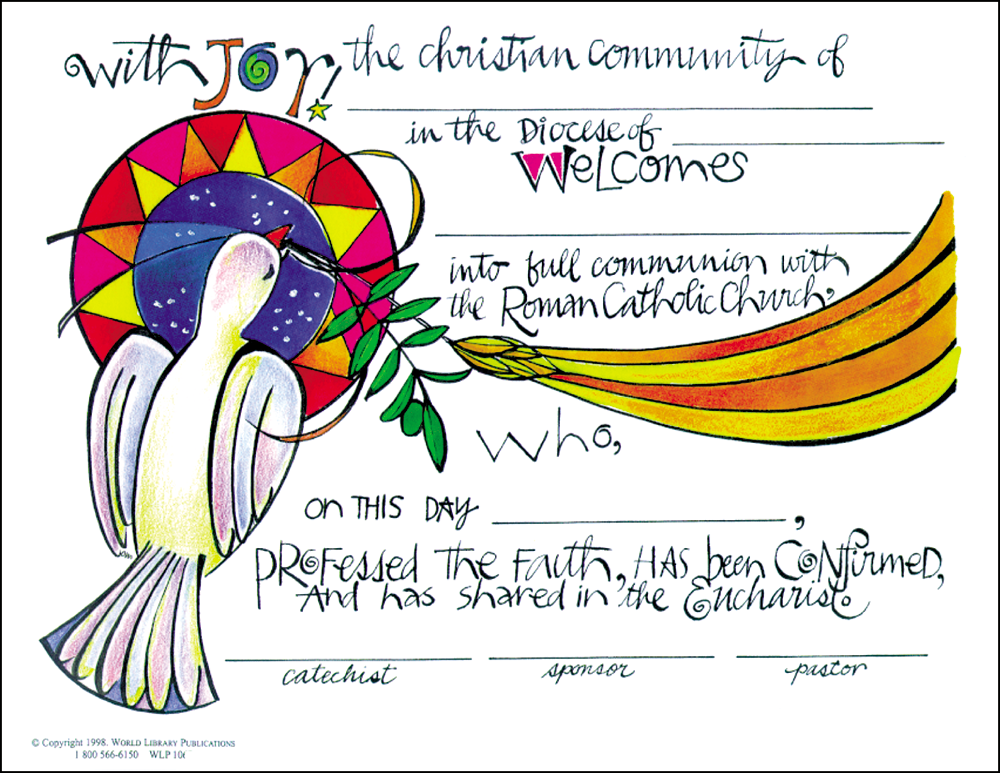 with JOY! the christian community of
in the Diocese of
Welcomes
into full communion with
the Roman Catholic Church,
who,
on THIS DAY ,
PROFessed The Faith, HAS been CONfirmeD,
And has shared in the Eucharist.
catechist sponsor pastor
© Copyright 1998. WORLD LIBRARY PUBLICATIONS
1 800 566-6150 WLP